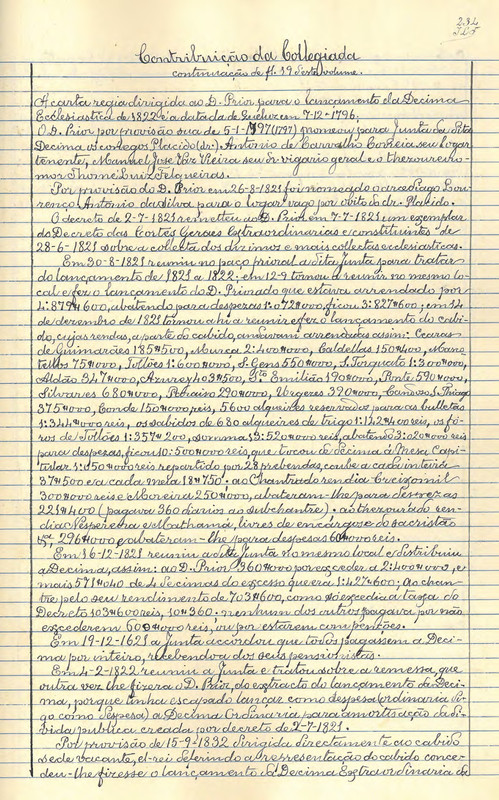 232
Contribuição da Collegiada
continuação de fl. 19 Sexto volume.
A carta regia dirigida ao D. Prior para o lançamento da Decima
Ecclesiastica de 1822 é a datada de Queluz em 7-12-1796;
O D. Prior por provisão sua de 5-1-1797 (1797) nomeou para Junta da dita
Decima os conegos Placido (dr.) Antonio de Carvalho Correia seu logar
tenente, Manuel José Vaz Vieira seu dr vigario geral e o thesoureiro-
mor Thomé Luiz Felgueiras.
Por provisão do D. Prior em 26-8-1821 foi nomeado o arcediago Lou-
renço Antonio da Silva para o logar vago por obito do dr. Placido.
O decreto de 2-7-1821 remetteu ao D. Prior em 7-7-1821 um exemplar
do Decreto das Cortes Geraes Extraordinarias e constituintes de
28-6-1821 sobre a collecta dos dizimos e mais collectas ecclesiasticas.
Em 30-8-1821 reuniu no paço prioral a dita Junta para tratar
do lançamento de 1821 a 1822; em 12-9 tornou a reunir no mesmo lo-
cal e fez o lançamento do D. Priorado que estava arrendado por
4:899#600, abatendo para despezas 1:072#000, ficou 3:827#600; em 14
de dezembro de 1821 tornou ahi a reunir e fez o lançamento do cabi-
do, cujas rendas, a parte do cabido, andavam arrendadas assim: Cearas
de Guimarães 185#500, Murça 2:400#000, Caldellas 150#400, Mas-
tellos 75#000, Tollões 1:600#000, S. Gens 550#000, S. Torquato 1:300#000,
Aldão 347#000, Azurey 403#500, Sto Emilião 190#000, Ponte 590#000,
Silvares 680#000, Polvoreira 290#000, Urgezes 390#000, Candoso S. Thiago
375#000, Conde 150#000 reis, 5600 alqueires reservados para as bulletas
1:344#000 reis, os sabidos de 680 alqueires de trigo 1:142#400 reis, os fó-
ros de Tollões 1:357#200, somma 13:520#000 reis, abatendo 3:020#000 reis
para despezas, ficou 10:500#000 reis, que tocou de decima á Mesa Capi-
tular 1:050#000 reis repartido por 28 prebendas, coube a cada inteira
37#500 e a cada meia 18#750. ao Chantrado rendia Creixomil
300#000 reis e Moreira 250#000, abateram-lhe para despezas
225#400 (pagava 360 diarios ao subchantre). ao thesourado ren-
dia Nespereira e Mathamá, livres de encargos do sacristão
etc., 296#000 e abateram-lhe para despesas 60#000 reis.
Em 16-12-1821 reuniu a dita Junta no mesmo local e distribuiu
a Decima, assim: ao D. Prior 360#000 por exceder a 2:400#000, e
mais 571#040 de 4 decimas do excesso que era 1:427#600; ao chan-
tre pelo seu rendimento de 703#600, como só excedia á taxa do
Decreto 103#600 reis, 10#360; nenhum dos outros pagava por não
excederem 600#000 reis, ou por estarem com pensões.
Em 19-12-1621 a Junta accordou que todos pagassem a Deci-
ma por inteiro, recebendo-a dos seus pensionistas.
Em 4-2-1822 reuniu a Junta e tratou sobre a remessa, que
outra vez lhe fizera o D. Prior, do extracto do lançamento da Deci-
ma, porque tinha escapado lançar como despesa (ordinaria di-
go como despesa) a Decima Ordinaria para amortisação da di-
vida publica creada por decreto de 2-7-1821.
Por provisão de 15-9-1832 dirigida directamente ao cabido
sede vacante, el-rei deferindo a representação do cabido conce-
deu-lhe fizesse o lançamento da Decima Extraordinaria da